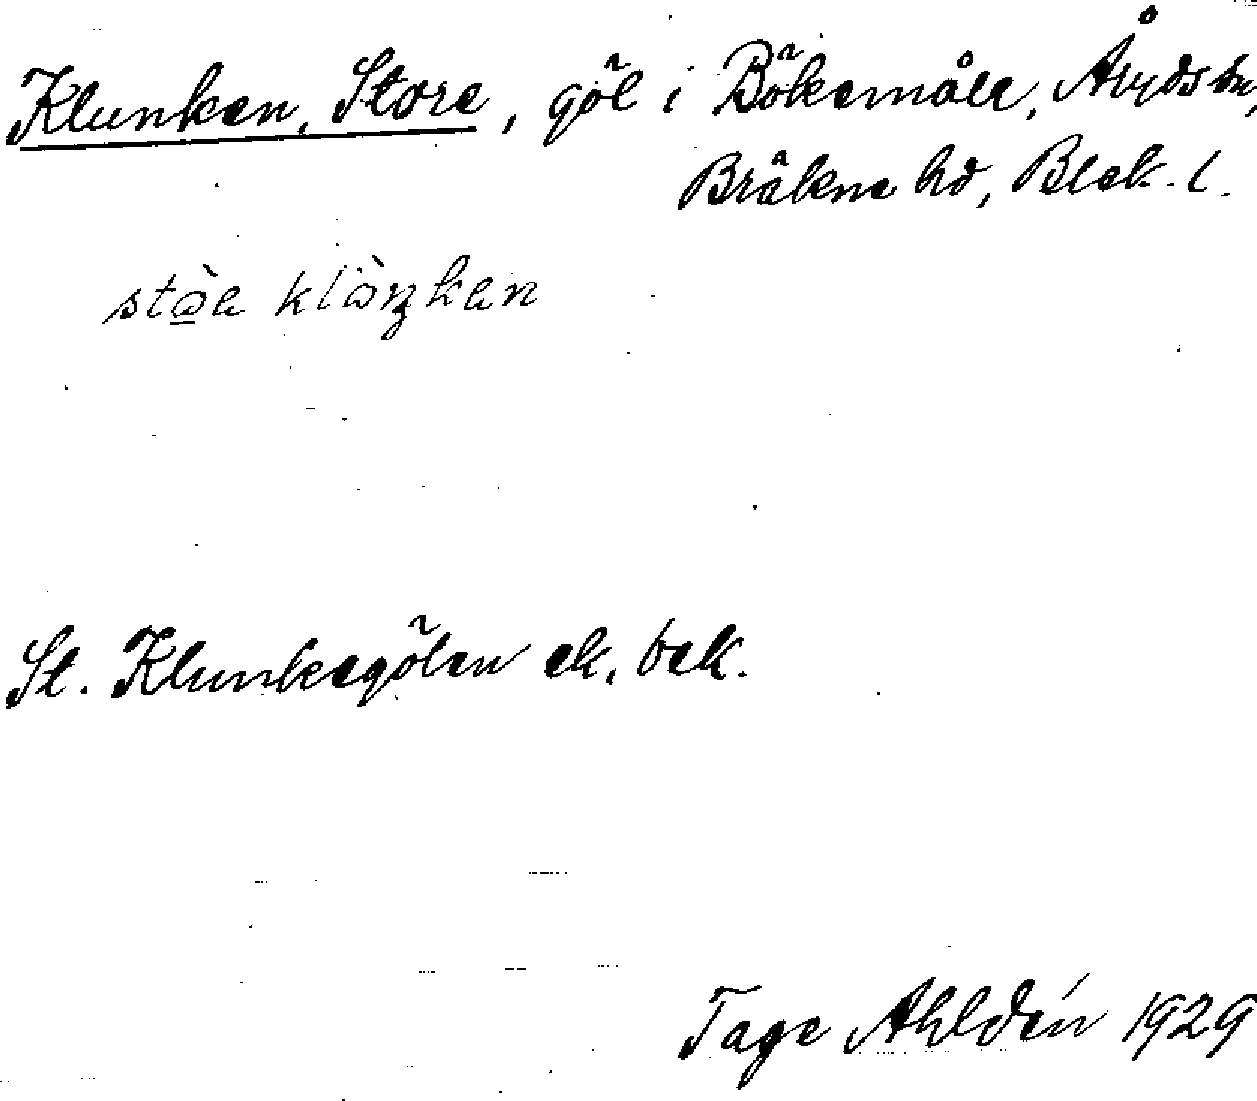 Klunken, Store, göl i Bökemåla, Åryds sn,
Bräkne hd, Blek. l.
St. Klunkagölen ek. bek.
Tage Ahldén 1929